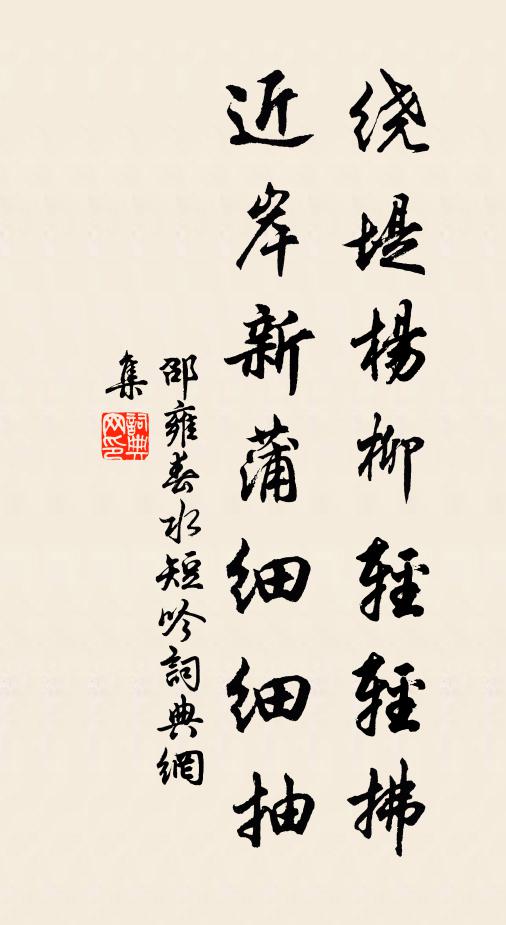 绕堤楊柳輕輕拂
近岸新蒲细细抽
邵雍春水短吟詞典網
集
詞典
网印